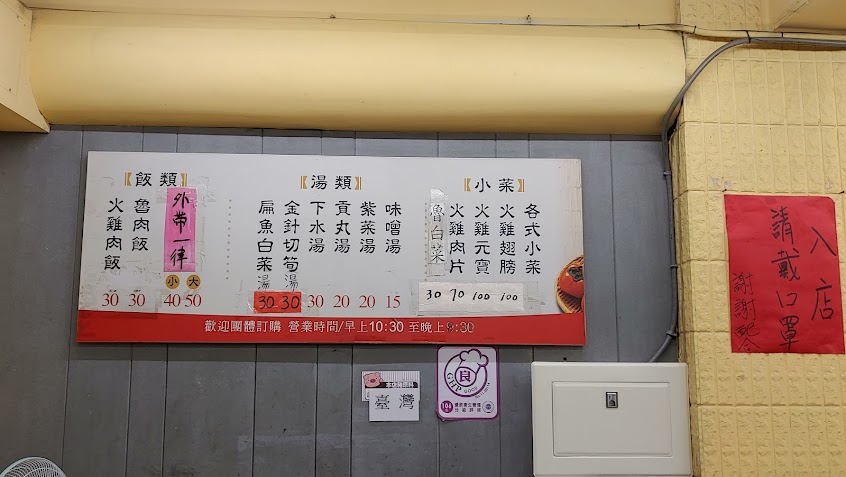 【飯類】
火雞肉飯 30
魯肉飯 30
外帶一律
小 大
40 50
【湯類】
扁魚白菜湯 30
金針切筍湯 30
下水湯 30
貢丸湯 20
紫菜湯 20
味噌湯 15
【小菜】
魯白菜 30
火雞肉片 70
火雞元寶 100
火雞翅膀 100
各式小菜
歡迎團體訂購 營業時間/早上10:30 至晚上9:30
入店
請戴口罩
謝謝配合
臺灣
良
GHP